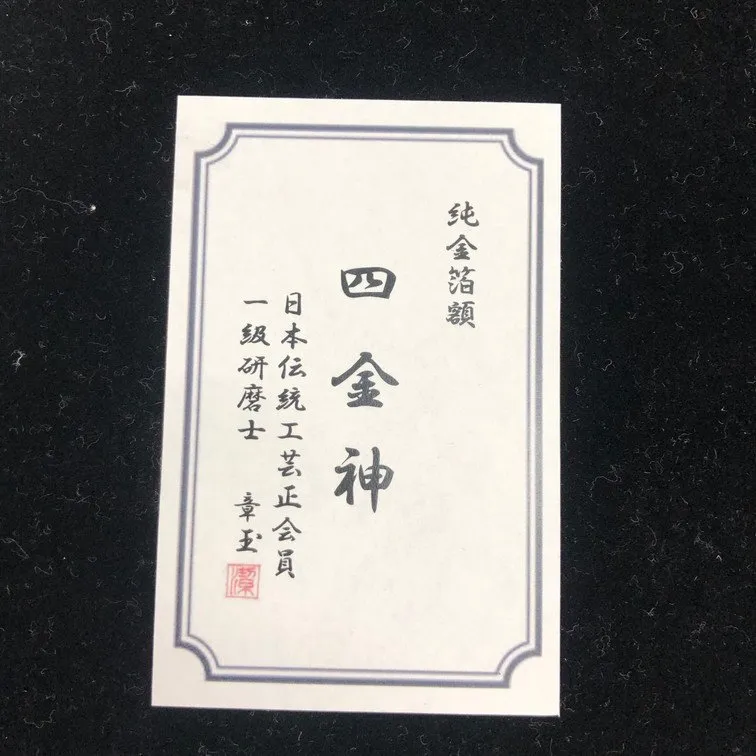 純金箔額
四金神
日本伝統工芸正会員
一級研磨士 章玉